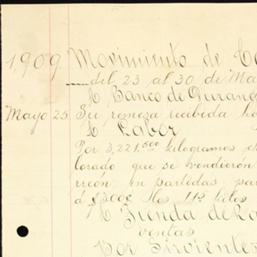 1909 Movimiento de Ca
del 23 al 30 de Ma
C, Banco de Durang
Mayo 25 Su remesa recibida ho
C, Labor
Por 3,221.500 kilogramos
lorado que se vendieron
rreón, en partidas, pa
á $
C, Tienda de Ra
ventas
Por Sirvientes